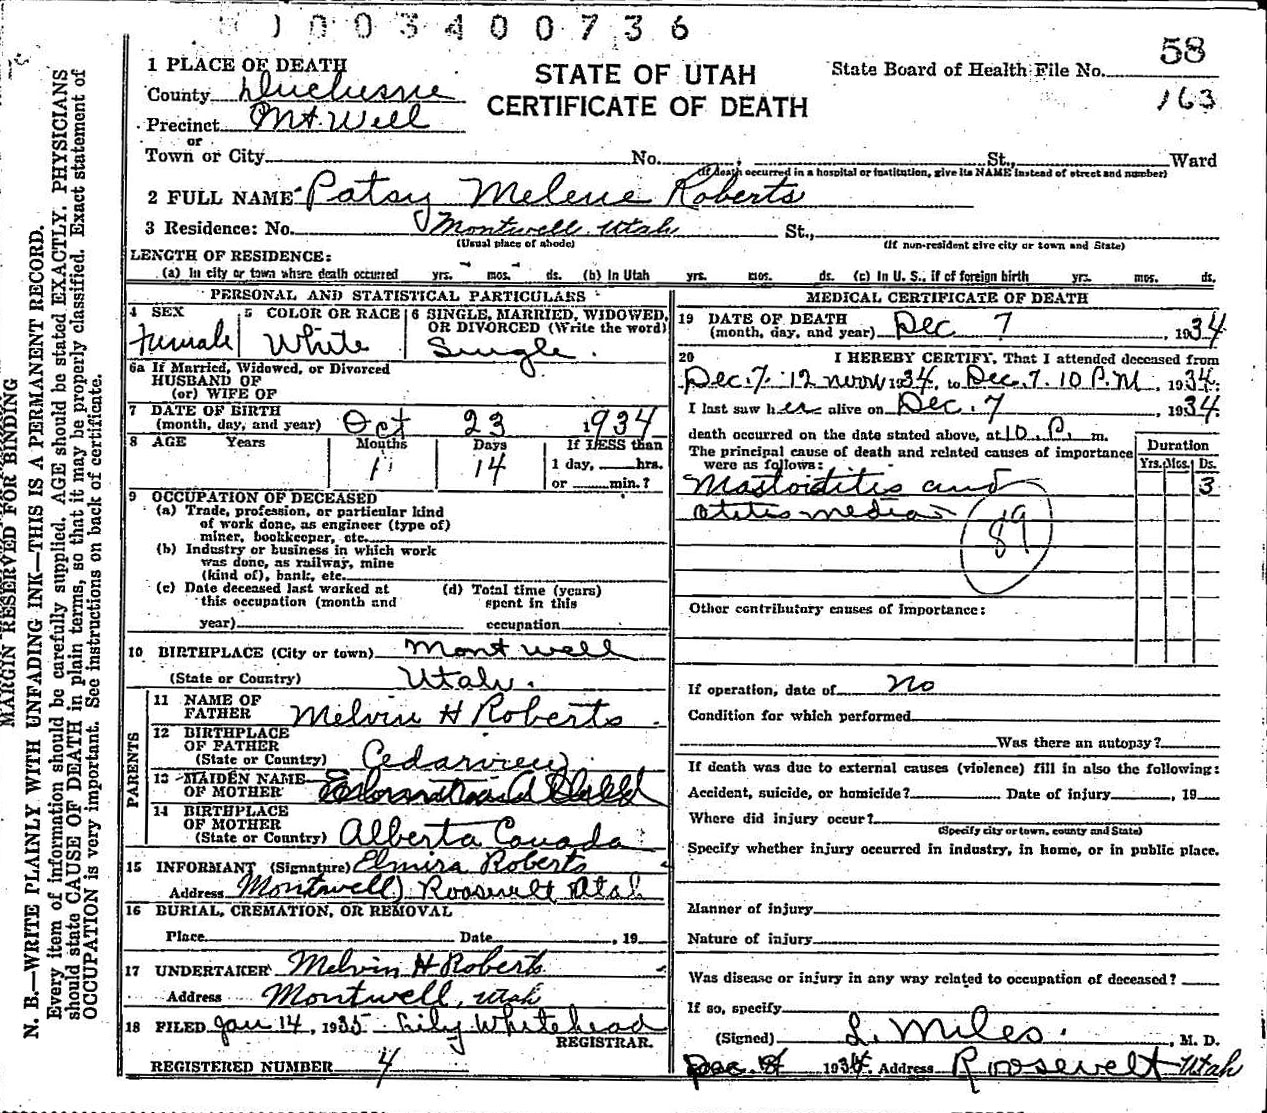 1 0 0 3 4 0 0 7 3 6
58
163
1 PLACE OF DEATH
STATE OF UTAH
CERTIFICATE OF DEATH
State Board of Health File No.
County Duchesne
Precinct Mt. Well
or
Town or City No. , St., Ward
(If death occurred in a hospital or institution, give its NAME instead of street and number)
2 FULL NAME Patsy Melene Roberts
3 Residence: No. Montwell Utah St.,
(Usual place of abode) (If non-resident give city or town and State)
LENGTH OF RESIDENCE:
(a) In city or town where death occurred yrs. mos. ds. (b) In Utah yrs. mos. ds. (c) In U. S., if of foreign birth yrs. mos. ds.
PERSONAL AND STATISTICAL PARTICULARS
4 SEX 5 COLOR OR RACE 6 SINGLE, MARRIED, WIDOWED, OR DIVORCED (Write the word)
Female White Single.
6a If Married, Widowed, or Divorced
HUSBAND OF
(or) WIFE OF
7 DATE OF BIRTH
(month, day, and year) Oct 23 1934
8 AGE Years Months Days If LESS than
1 14 1 day, hrs.
or min.?
9 OCCUPATION OF DECEASED
(a) Trade, profession, or particular kind
of work done, as engineer (type of)
miner, bookkeeper, etc.
(b) Industry or business in which work
was done, as railway, mine
(kind of), bank, etc.
(c) Date deceased last worked at (d) Total time (years)
this occupation (month and spent in this
year) occupation
10 BIRTHPLACE (City or town) Montwell
(State or Country) Utah.
PARENTS
11 NAME OF
FATHER Melvin H Roberts
12 BIRTHPLACE
OF FATHER
(State or Country) Cedarview
13 MAIDEN NAME
OF MOTHER
14 BIRTHPLACE
OF MOTHER
(State or Country) Alberta Canada
15 INFORMANT (Signature) Elmira Roberts
Address Montwell) Roosevelt Utah
16 BURIAL, CREMATION, OR REMOVAL
Place Date , 19
17 UNDERTAKER Melvin H Roberts
Address Montwell, Utah
18 FILED Jan 14, 1935 Lily Whitehead
REGISTRAR.
REGISTERED NUMBER 4
MEDICAL CERTIFICATE OF DEATH
19 DATE OF DEATH
(month, day, and year) Dec 7 , 1934
20 I HEREBY CERTIFY, That I attended deceased from
Dec. 7. 12 noon 1934, to Dec. 7. 10 P.M , 1934:
I last saw her alive on Dec. 7 , 1934.
death occurred on the date stated above, at 10 P. m.
The principal cause of death and related causes of importance
were as follows:
Duration
Yrs. Mos. Ds.
Mastoiditis and 3
otitis media
89
Other contributory causes of importance:
If operation, date of no
Condition for which performed
Was there an autopsy?
If death was due to external causes (violence) fill in also the following:
Accident, suicide, or homicide? Date of injury , 19
Where did injury occur?
(Specify city or town, county and State)
Specify whether injury occurred in industry, in home, or in public place.
Manner of injury
Nature of injury
Was disease or injury in any way related to occupation of deceased?
If so, specify
(Signed) L. Miles. , M. D.
Dec. 8 1934. Address Roosevelt Utah
MARGIN RESERVED FOR BINDING
N. B.—WRITE PLAINLY WITH UNFADING INK—THIS IS A PERMANENT RECORD.
Every item of information should be carefully supplied. AGE should be stated EXACTLY. PHYSICIANS
should state CAUSE OF DEATH in plain terms, so that it may be properly classified. Exact statement of
OCCUPATION is very important. See instructions on back of certificate.